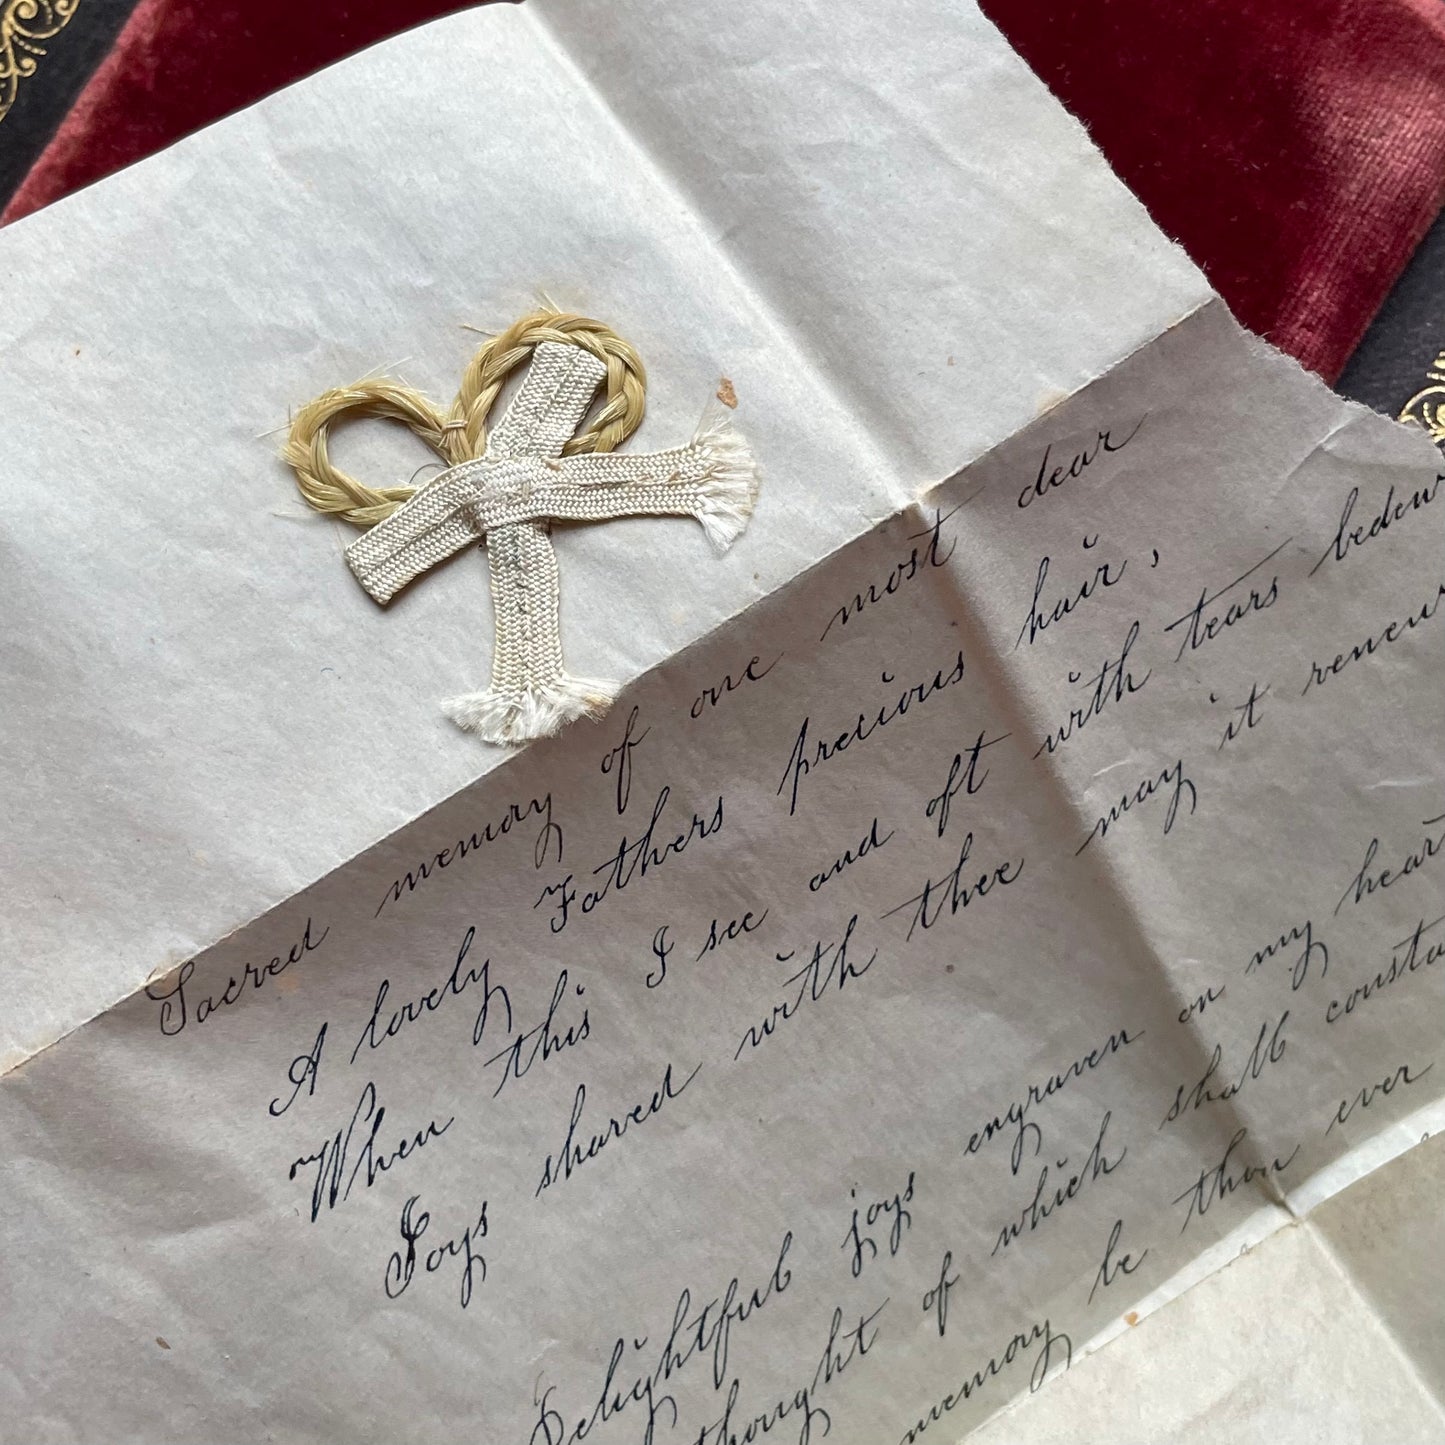 Sacred memory of one most dear
A lovely Fathers precious hair,
When this I see and oft with tears bedew
Joys shared with thee may it renew
Delightful joys engraven on my heart
thought of which shall consta
memory be thou ever